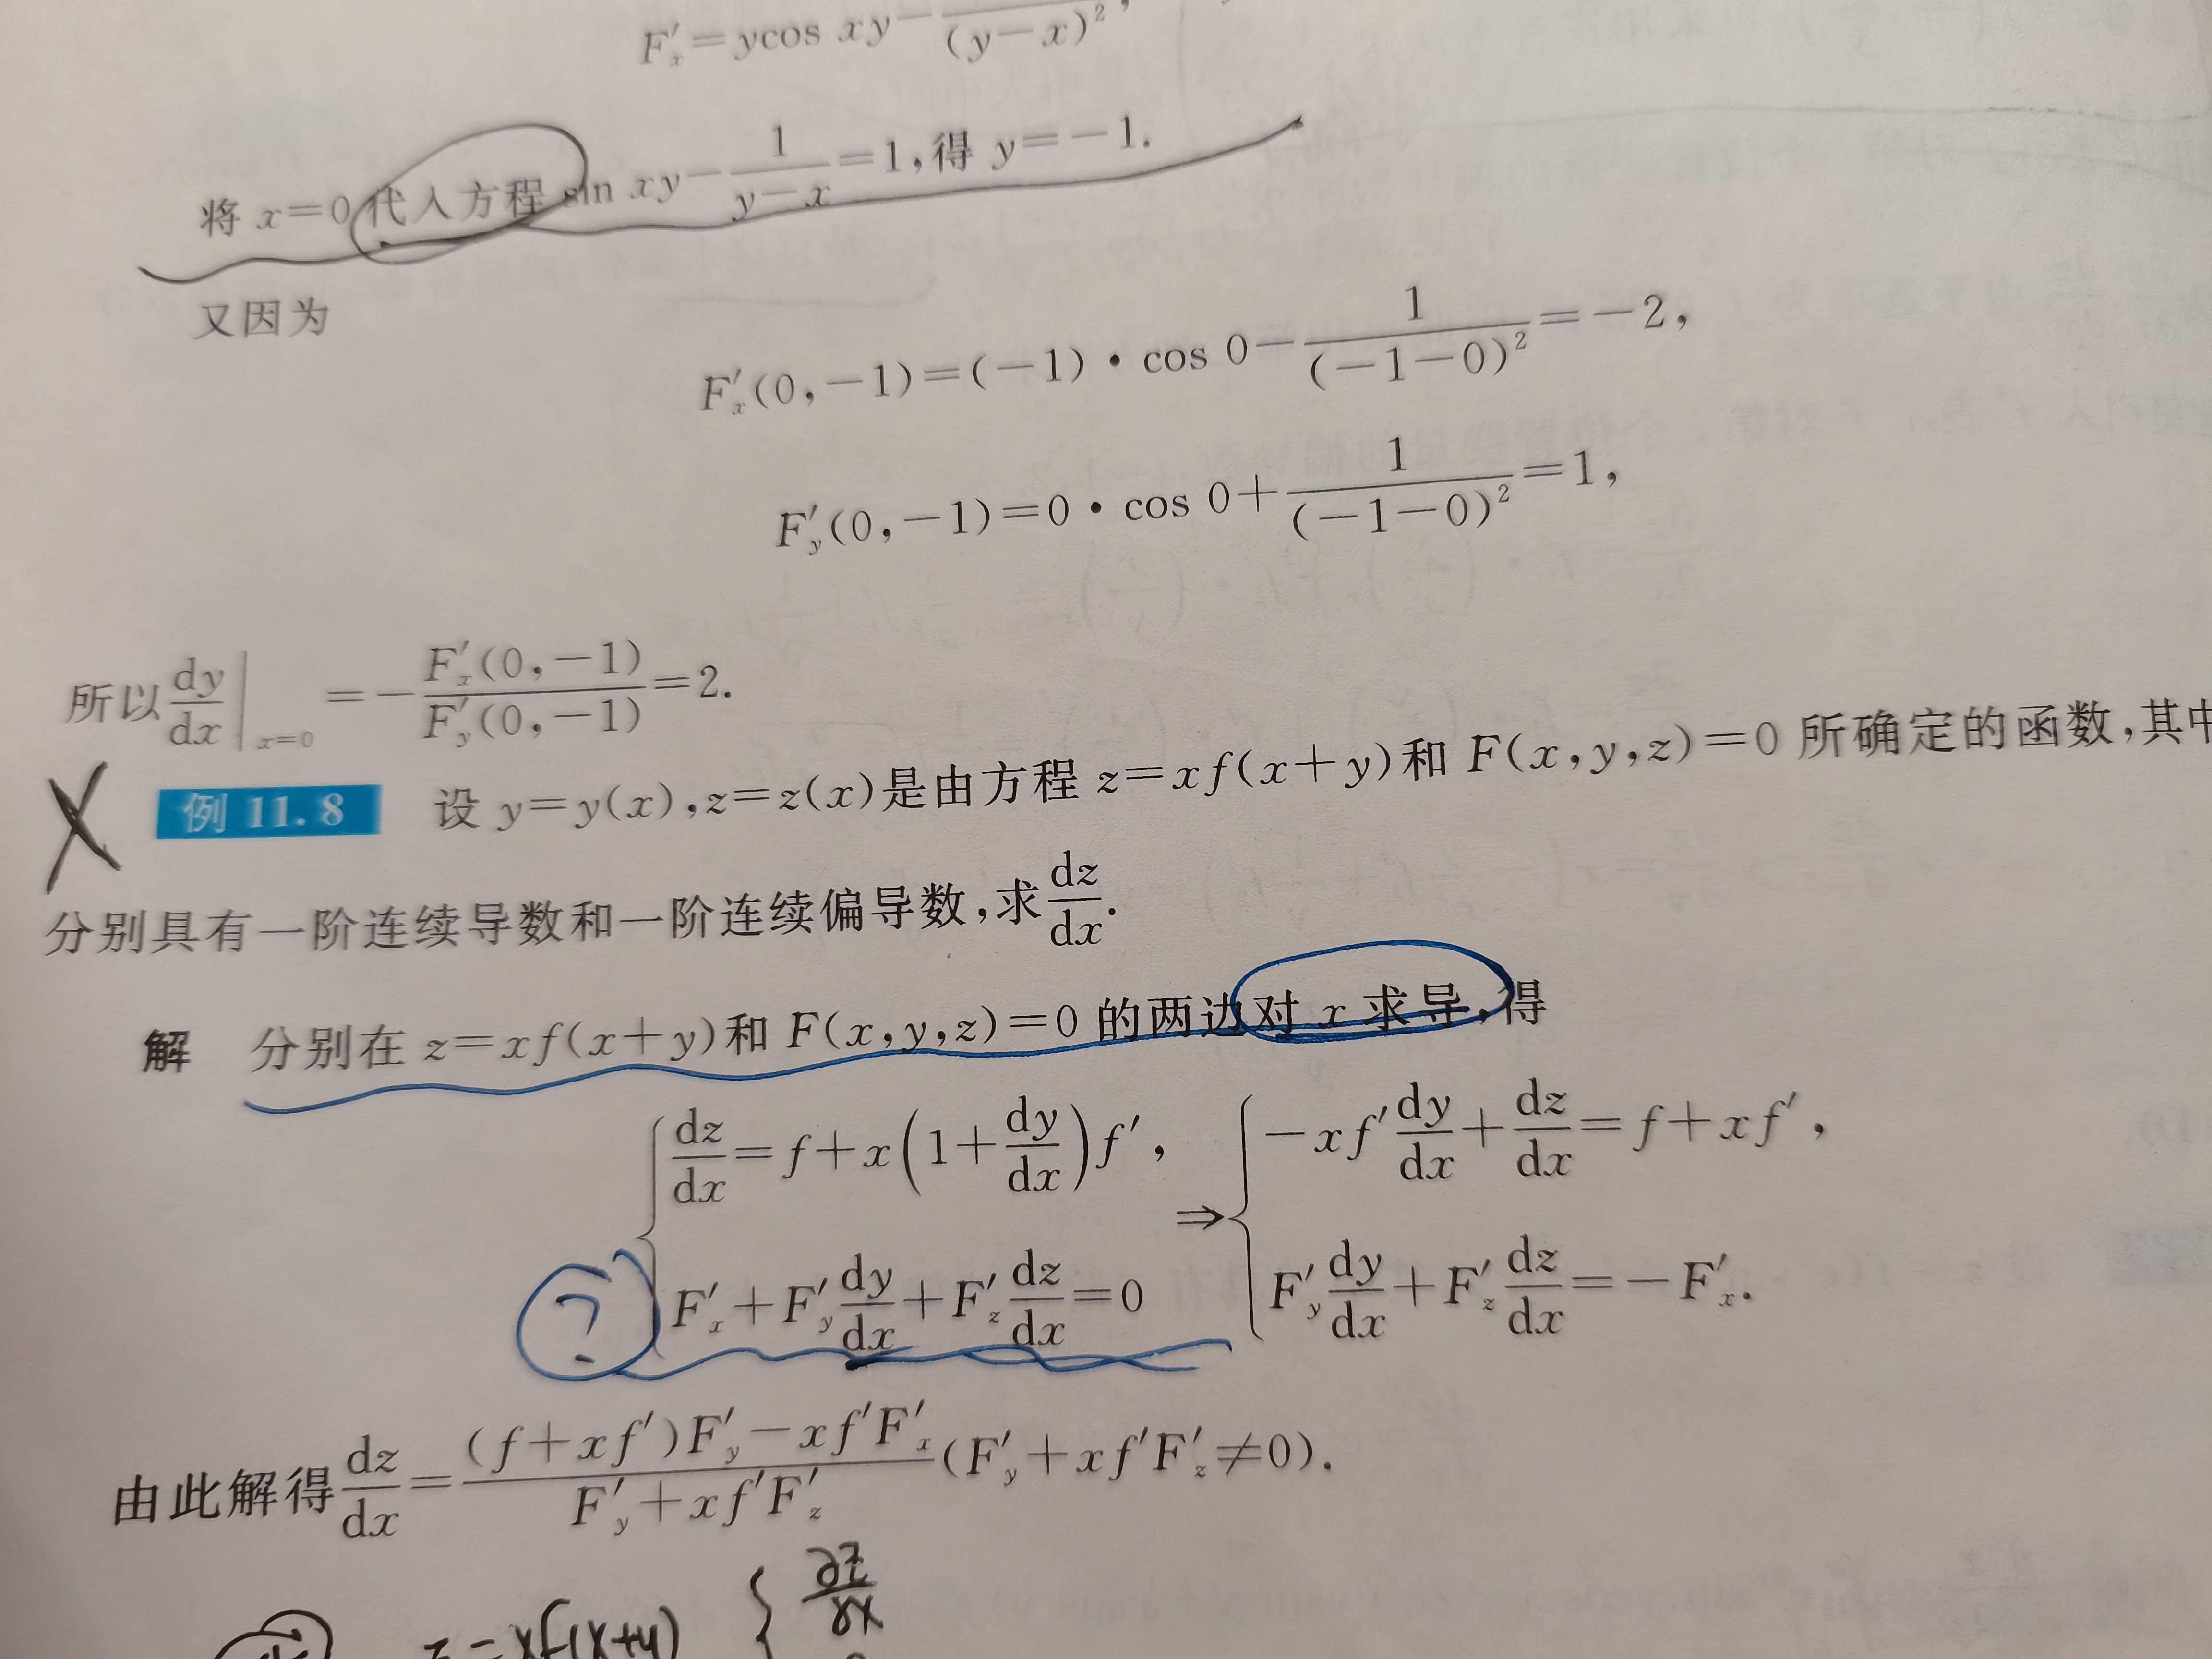 F'_x=ycos xy-\frac{}{(y-x)^2},
将 x=0 代入方程 sin xy-\frac{1}{y-x}=1,得 y=-1.
又因为
F'_x(0,-1)=(-1)·cos 0-\frac{1}{(-1-0)^2}=-2,
F'_y(0,-1)=0·cos 0+\frac{1}{(-1-0)^2}=1,
所以\frac{dy}{dx}|_{x=0}=-\frac{F'_x(0,-1)}{F'_y(0,-1)}=2.
X 例 11.8 设 y=y(x),z=z(x)是由方程 z=xf(x+y)和 F(x,y,z)=0 所确定的函数,其中
分别具有一阶连续导数和一阶连续偏导数,求\frac{dz}{dx}.
解 分别在 z=xf(x+y)和 F(x,y,z)=0 的两边对 x 求导,得
{\frac{dz}{dx}=f+x(1+\frac{dy}{dx})f', ⇒ {-xf'\frac{dy}{dx}+\frac{dz}{dx}=f+xf',
? F'_x+F'_y\frac{dy}{dx}+F'_z\frac{dz}{dx}=0 F'_y\frac{dy}{dx}+F'_z\frac{dz}{dx}=-F'_x.
由此解得\frac{dz}{dx}=\frac{(f+xf')F'_y-xf'F'_x}{F'_y+xf'F'_z}(F'_y+xf'F'_z≠0).
z=xf(x+y) {\frac{∂z}{∂x}